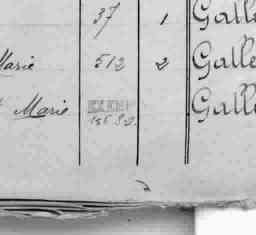 37 1 Galle
Marie 512 2 Galle
Marie Galle